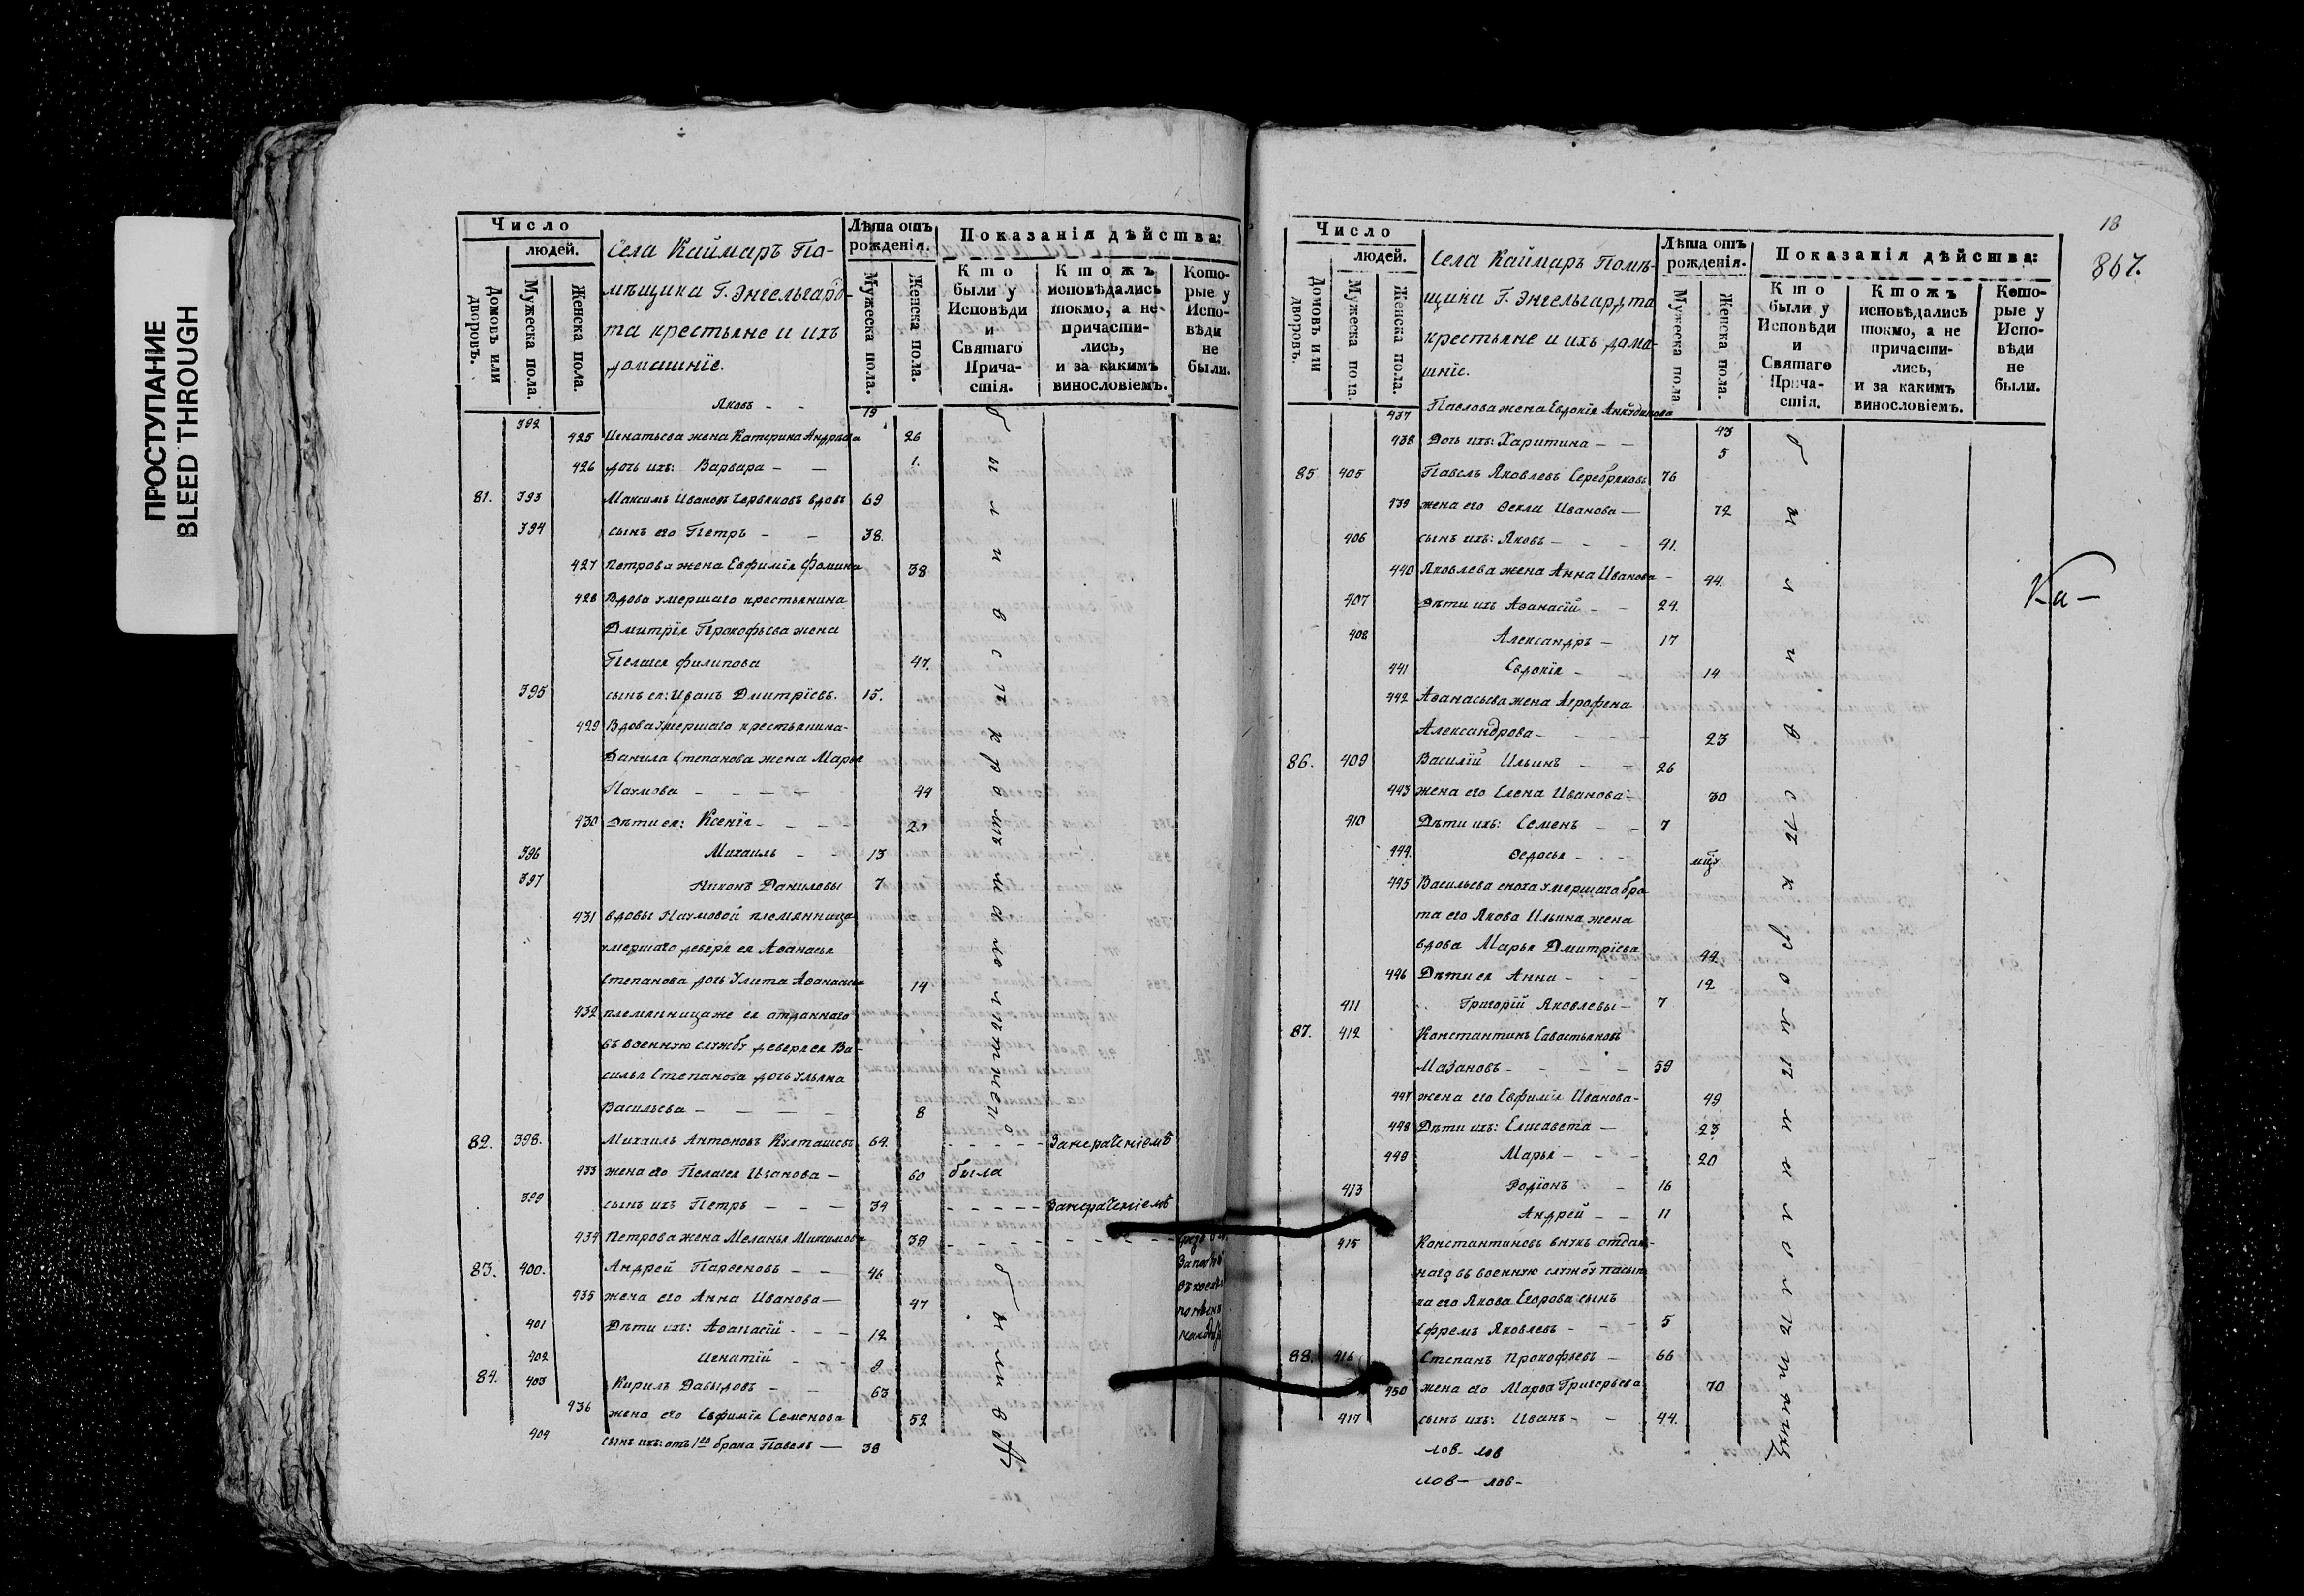 ПРОСТУПАНИЕ
BLEED THROUGH
Число
людей.
Домовъ или дворовъ.
Мужеска пола.
Женска пола.
Села Каймаръ По-
мѣщика Г. Энгельгард-
та крестьяне и ихъ
домашніе.
Лѣта отъ рожденія.
Мужеска пола.
Женска пола.
Показанія дѣйства:
Кто были у Исповѣди и Святаго Прича- стія.
Ктожъ исповѣдались токмо, а не причасти- лись, и за какимъ винословіемъ.
Кото- рые у Испо- вѣди не были.
392 Яковъ - - 19
425 Игнатьева жена Катерина Андреева 26
426 дочь ихъ: Варвара - - 1.
81. 393 Максимъ Ивановъ Червяковъ вдовъ 69
394 сынъ его Петръ - - 38.
427 Петрова жена Евфимія Фомина 38
428 Вдова умершаго крестьянина
Дмитрія Прокофьева жена
Пелагея Филипова 47.
395 сынъ ея: Иванъ Дмитріевъ. 15.
429 Вдова умершаго крестьянина-
Данила Степанова жена Марья
Наумова - - - - 44
430 Дѣти ея: Ксенія - - - - 20
396 Михаилъ - - 13
397 Никонъ Даниловы 7
431 вдовы Наумовой племянница
умершаго деверя ея Аѳанасья
Степанова дочь Улита Аѳанасьева 14
432 племянницаже ея отданнаго
въ военную службу деверя ея Ва-
силья Степанова дочь Ульяна
Васильева - - - - 8
82. 398. Михаилъ Антоновъ Култашевъ 64. - - - - - Занераченіемъ
433 жена его Пелагея Иванова - 60 была
399 сынъ ихъ Петръ - - - 34 - - - - - Занераченіемъ
434 Петрова жена Меланья Максимова 39 - - - - - - - -
83. 400. Андрей Парѳеновъ - - 46
435 жена его Анна Иванова - 47
401 Дѣти ихъ: Аѳанасій - - - 12
402 Игнатій - - - 9
84. 403 Кирилъ Давыдовъ - - 63
436 жена его Евфимія Семенова 52
404 сынъ ихъ: отъ 1го брака Павелъ - 38
18
867.
Число
людей.
Домовъ или дворовъ.
Мужеска пола.
Женска пола.
Села Каймаръ Помѣ-
щика Г. Энгельгардта
крестьяне и ихъ дома-
шніе.
Лѣта отъ рожденія.
Мужеска пола.
Женска пола.
Показанія дѣйства:
Кто были у Исповѣди и Святаго Прича- стія.
Ктожъ исповѣдались токмо, а не причасти- лись, и за какимъ винословіемъ.
Кото- рые у Испо- вѣди не были.
437 Павлова жена Евдокія Анкудинова 43
438 Дочь ихъ: Харитина - - 5
85 405 Павелъ Яковлевъ Серебряковъ 76
439 жена его Ѳекла Иванова - 72
406 сынъ ихъ: Яковъ - - - 41.
440 Яковлева жена Анна Иванова - 44.
407 Дѣти ихъ Аѳанасій - - 24.
408 Александръ - 17
441 Евдокія - - 14
442 Аѳанасьева жена Агрофена
Александрова - - - - 23
86. 409 Василій Ильинъ - - 26
443 жена его Елена Иванова - 30
410 Дѣти ихъ: Семенъ - - 7
444. Ѳедосья - - -
445 Васильева сноха умершаго бра-
та его Якова Ильина жена
вдова Марья Дмитріева 44
446 Дѣти ея Анна - - - 12
411 Григорій Яковлевы - 7
87. 412 Константинъ Савостьяновъ
Мазановъ - - - - 59
447 жена его Евфимія Иванова - 49
448 Дѣти ихъ: Елисавета - 23
449 Марья - - - 20
413 Родіонъ - - 16
Андрей - - 11
415 Константиновъ внукъ отдан-
наго въ военную службу пасын-
ка его Якова Егорова сынъ
Ефремъ Яковлевъ - - - 5
88. 416 Степанъ Прокофьевъ - 66
450 жена его Марѳа Григорьева 70
417 сынъ ихъ: Иванъ - - 44.
Ка-